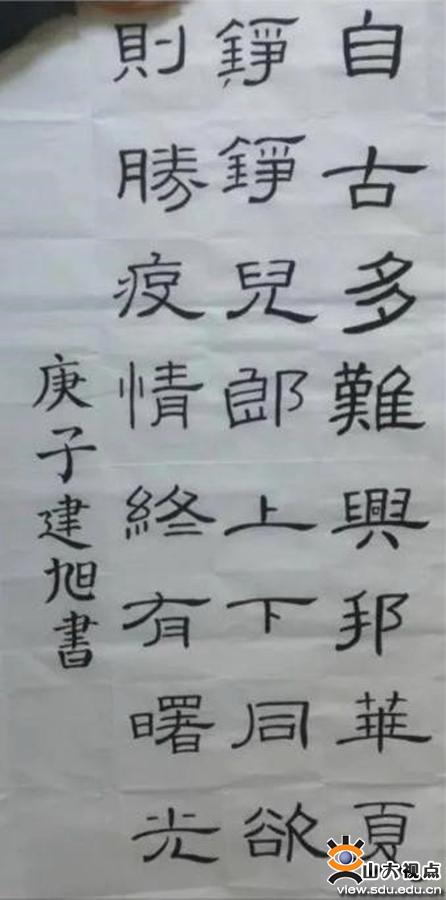 自古多難興邦華夏
錚錚兒郎上下同欲
則勝疫情終有曙光
庚子建旭書
山大视点
view.sdu.edu.cn